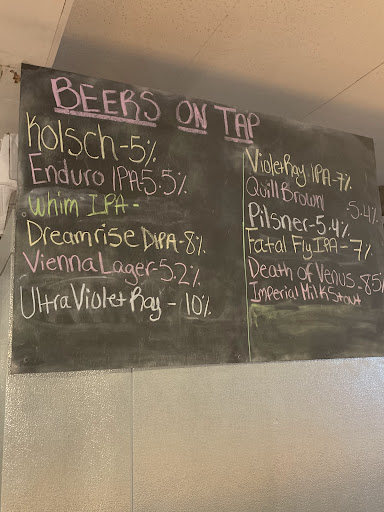 BEERS ON TAP
Kolsch-5%
Enduro IPA5.5%
Whim IPA-
Dreamrise DIPA-8%
Vienna Lager-5.2%
UltraViolet Ray - 10%
Violet Ray IPA-7%
Quill Brown 5.4%
Pilsner-5.4%
Fatal Fly IPA-7%
Death of Venus-8.5%
Imperial Milk Stout